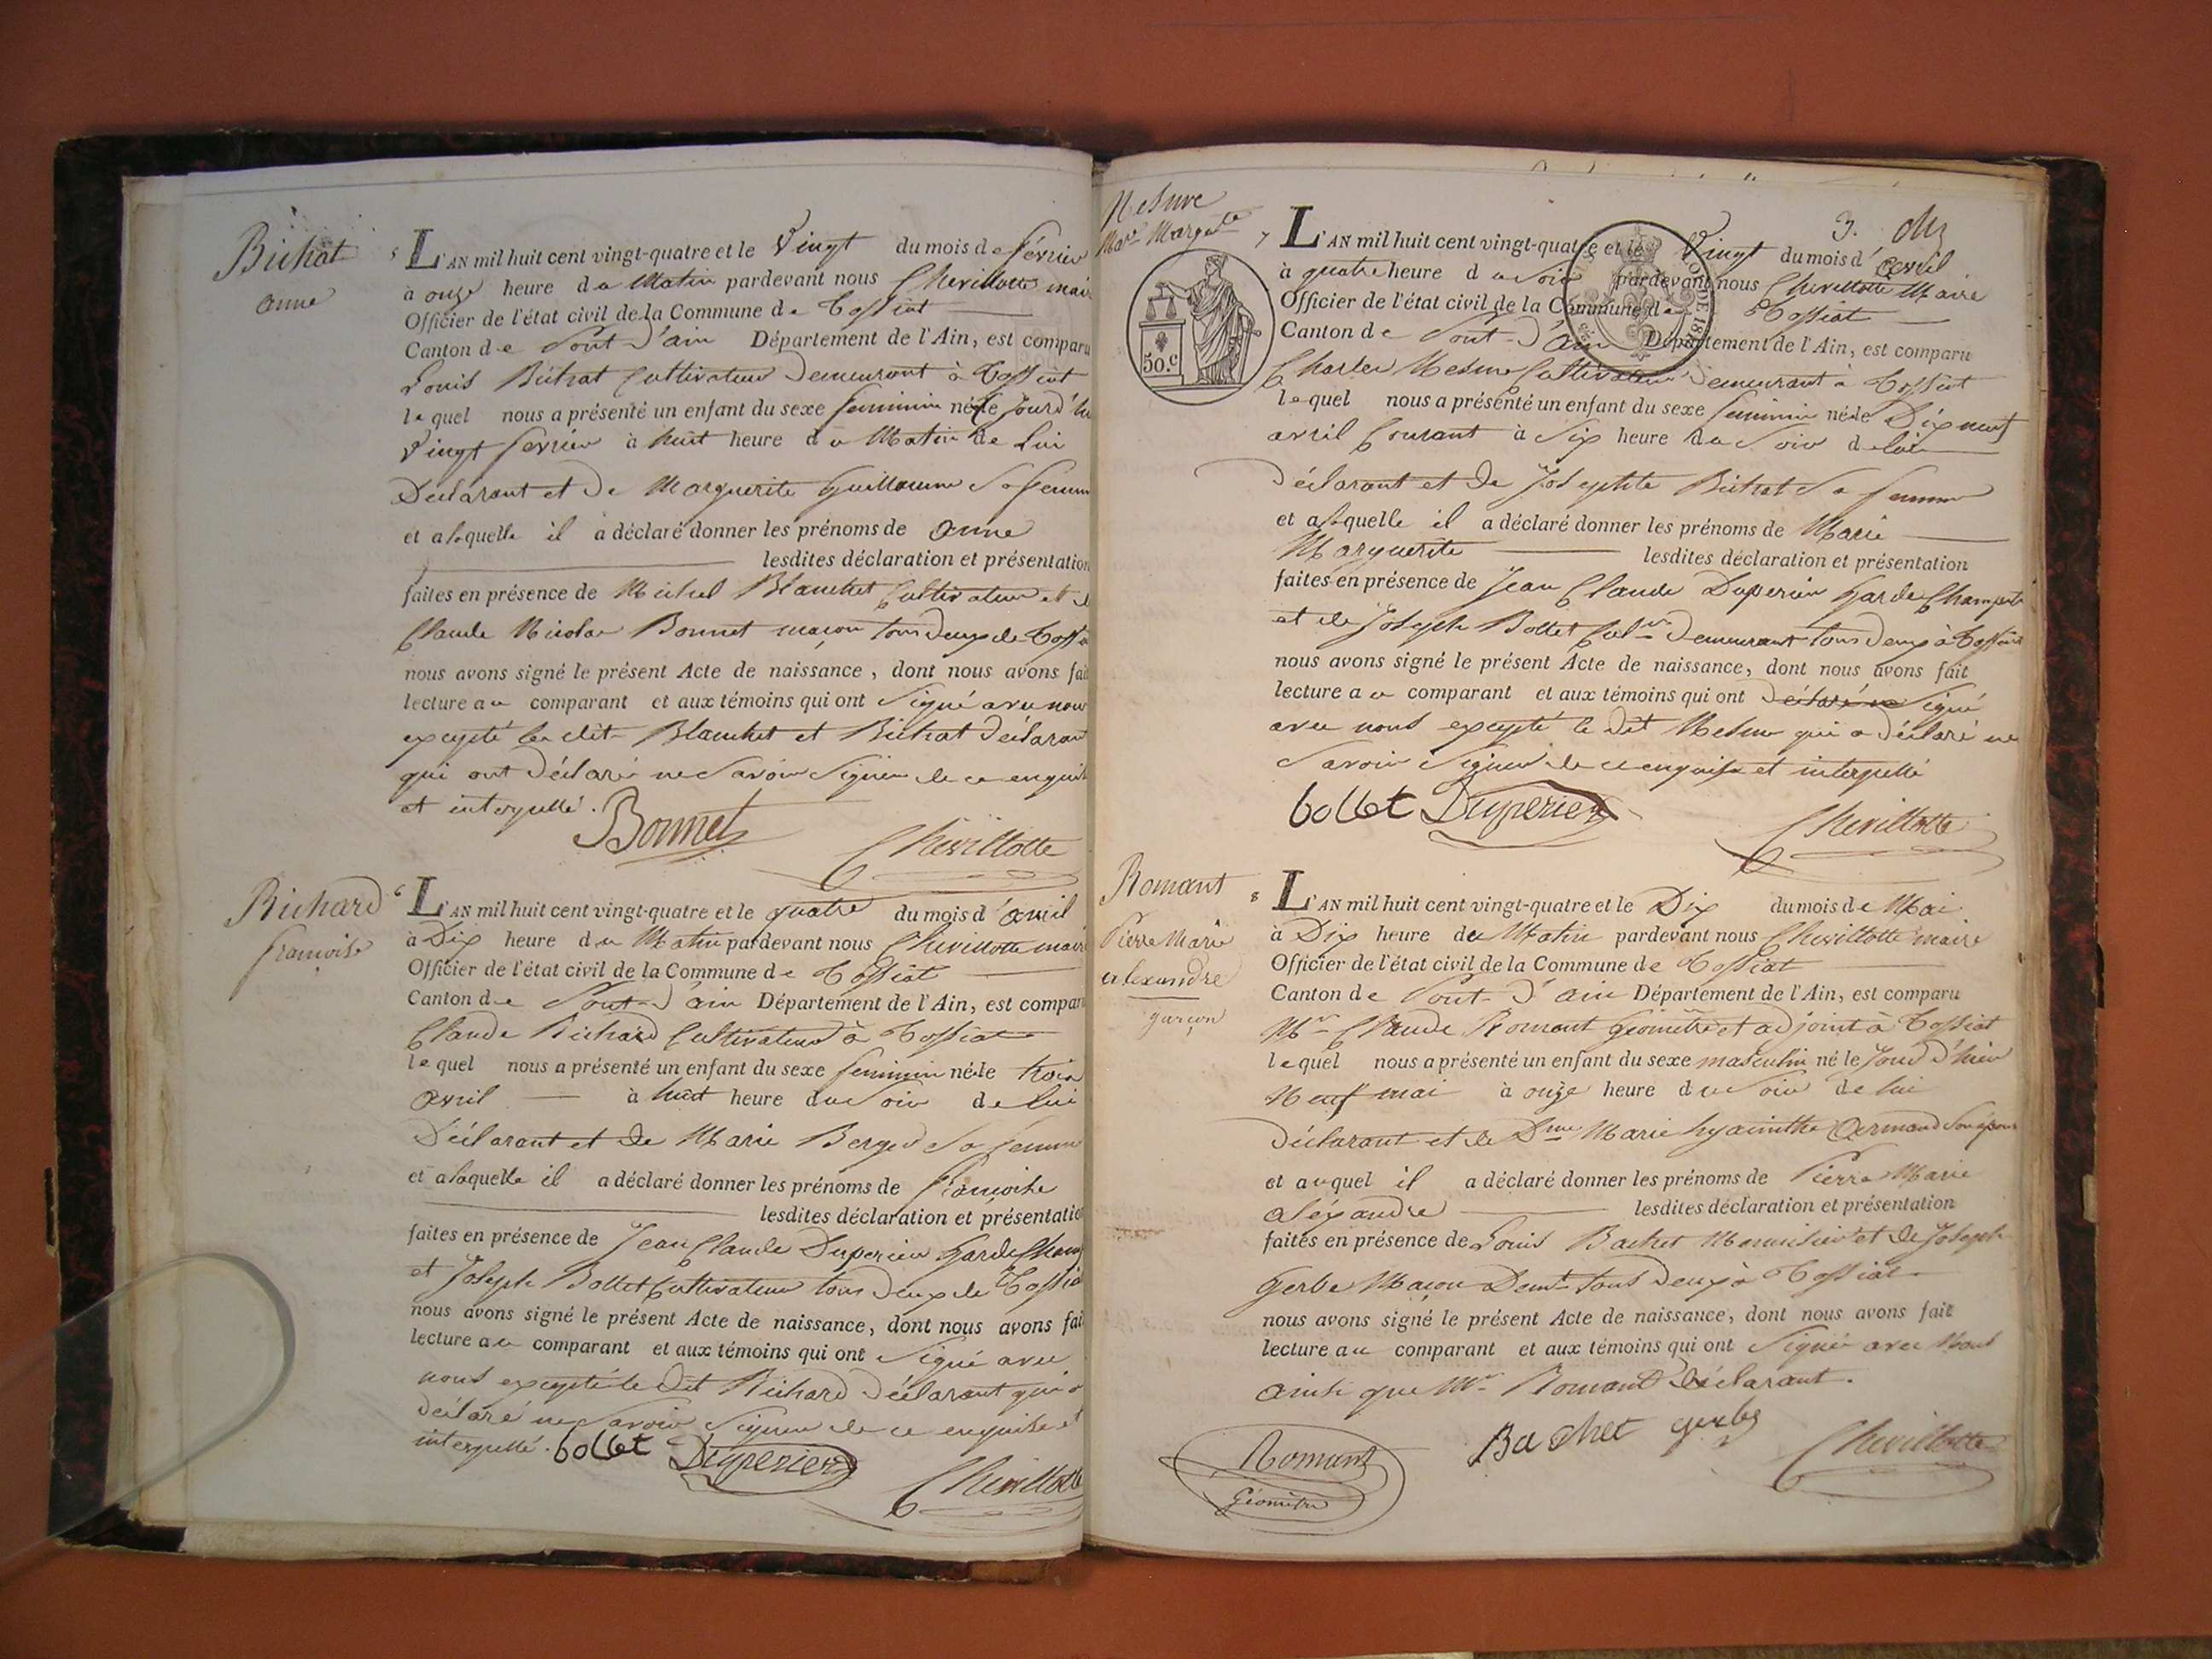 Bichat
anne
5
L'AN mil huit cent vingt-quatre et le Vingt du mois de février
à onze heure du Matin pardevant nous Chevillotte mair
Officier de l'état civil de la Commune de Tossiat
Canton de Pont-d'ain Département de l'Ain, est comparu
Louis Bichat Cultivateur Demeurant à Tossiat
lequel nous a présenté un enfant du sexe feminin née le Jourd'hui
Vingt fevrier à huit heure du Matin de Lui
Déclarant et De Marguerite Guillaume Sa femme
et a laquelle il a déclaré donner les prénoms de anne
lesdites déclaration et présentation
faites en présence de Michel Blanchet Cultivateur et de
Claude Nicolas Bonnet maçon tous deux de Tossia
nous avons signé le présent Acte de naissance, dont nous avons fait
lecture au comparant et aux témoins qui ont Signé avec nous
excepté les dits Blanchet et Bichat Déclarant
qui ont Déclaré ne Savoir Signer de ce enquis
et interpellé.
Bonnet
Chevillotte
Richard
françoise
6
L'AN mil huit cent vingt-quatre et le quatre du mois d'avril
à Dix heure du Matin pardevant nous Chevillotte maire
Officier de l'état civil de la Commune de Tossiat
Canton de Pont-d'ain Département de l'Ain, est comparu
Claude Richard Cultivateur à Tossiat
lequel nous a présenté un enfant du sexe feminin née le trois
avril à huit heure du Soir de lui
Déclarant et de Marie Berger Sa femme
et a laquelle il a déclaré donner les prénoms de françoise
lesdites déclaration et présentation
faites en présence de Jean Claude Duperier Garde Champ
et Joseph Bollet Cultivateur tous Deux de Tossia
nous avons signé le présent Acte de naissance, dont nous avons fait
lecture au comparant et aux témoins qui ont Signé avec
nous excepté le dit Richard Déclarant qui a
déclaré ne Savoir Signer de ce enquise et
interpellé.
bollet Duperier
Chevillotte
3.
Mesure
Marie Margte
50.c
7
L'AN mil huit cent vingt-quatre et le Vingt du mois d'avril
à quatre heure du Soir pardevant nous Chevillotte Maire
Officier de l'état civil de la Commune de Tossiat
Canton de Pont-d'ain Département de l'Ain, est comparu
Charles Mesure Cultivateur Demeurant à Tossiat
lequel nous a présenté un enfant du sexe feminin née le Dix neuf
avril Courant à Six heure du Soir de lui
Déclarant et De Josephte Bichat Sa femme
et a laquelle il a déclaré donner les prénoms de Marie
Marguerite lesdites déclaration et présentation
faites en présence de Jean Claude Duperier Garde Champte
et de Joseph Bollet Culr Demeurant tous Deux à Tossiat
nous avons signé le présent Acte de naissance, dont nous avons fait
lecture au comparant et aux témoins qui ont Déclaré ne Signé
avec nous excepté le dit Mesure qui a Déclaré ne
Savoir Signer de ce enquise et interpellé
bollet Duperier
Chevillotte
Romant
Pierre Marie
alexandre
garçon
8
L'AN mil huit cent vingt-quatre et le Dix du mois de Mai
à Dix heure du Matin pardevant nous Chevillotte maire
Officier de l'état civil de la Commune de Tossiat
Canton de Pont-d'ain Département de l'Ain, est comparu
Mr Claude Romant Géomètre et adjoint à Tossiat
lequel nous a présenté un enfant du sexe masculin né le Jour d'hier
Neuf mai à onze heure du Soir de lui
Déclarant et de Dme Marie hyacinthe Armand Son épouse
et auquel il a déclaré donner les prénoms de Pierre Marie
aléxandre lesdites déclaration et présentation
faites en présence de Louis Bachet Menuisier et De Joseph
Gerbe Maçon Demt tous Deux à Tossiat
nous avons signé le présent Acte de naissance, dont nous avons fait
lecture au comparant et aux témoins qui ont Signé avec Nous
ainsi que Mr Romant Déclarant.
Romant
Géomètre
Bachet gerbe
Chevillotte